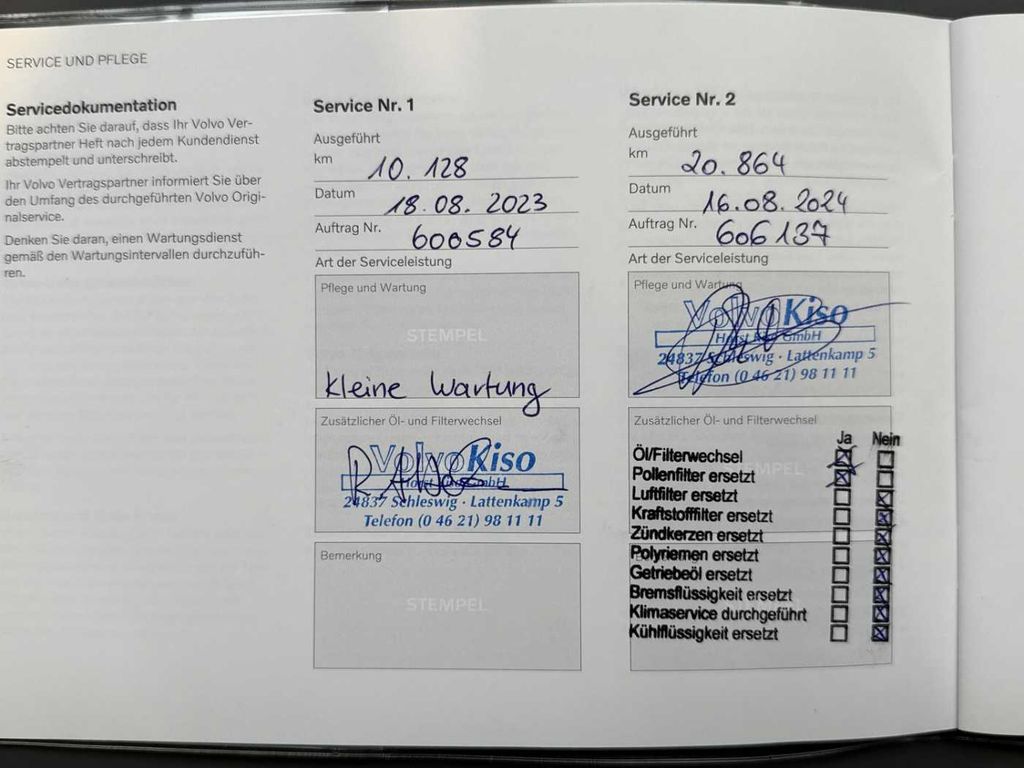 SERVICE UND PFLEGE
Servicedokumentation
Bitte achten Sie darauf, dass Ihr Volvo Ver-
tragspartner Heft nach jedem Kundendienst
abstempelt und unterschreibt.
Ihr Volvo Vertragspartner informiert Sie über
den Umfang des durchgeführten Volvo Origi-
nalservice.
Denken Sie daran, einen Wartungsdienst
gemäß den Wartungsintervallen durchzufüh-
ren.
Service Nr. 1
Ausgeführt
km 10.128
Datum 18.08.2023
Auftrag Nr. 600584
Art der Serviceleistung
Pflege und Wartung
STEMPEL
Kleine Wartung
Zusätzlicher Öl- und Filterwechsel
Volvo Kiso
24837 Schleswig · Lattenkamp 5
Telefon (0 46 21) 98 11 11
Bemerkung
STEMPEL
Service Nr. 2
Ausgeführt
km 20.864
Datum 16.08.2024
Auftrag Nr. 606137
Art der Serviceleistung
Pflege und Wartung
Volvo Kiso
Horst Kiso GmbH
24837 Schleswig · Lattenkamp 5
Telefon (0 46 21) 98 11 11
Zusätzlicher Öl- und Filterwechsel
Ja Nein
Öl/Filterwechsel
Pollenfilter ersetzt
Luftfilter ersetzt
Kraftstofffilter ersetzt
Zündkerzen ersetzt
Polyriemen ersetzt
Getriebeöl ersetzt
Bremsflüssigkeit ersetzt
Klimaservice durchgeführt
Kühlflüssigkeit ersetzt